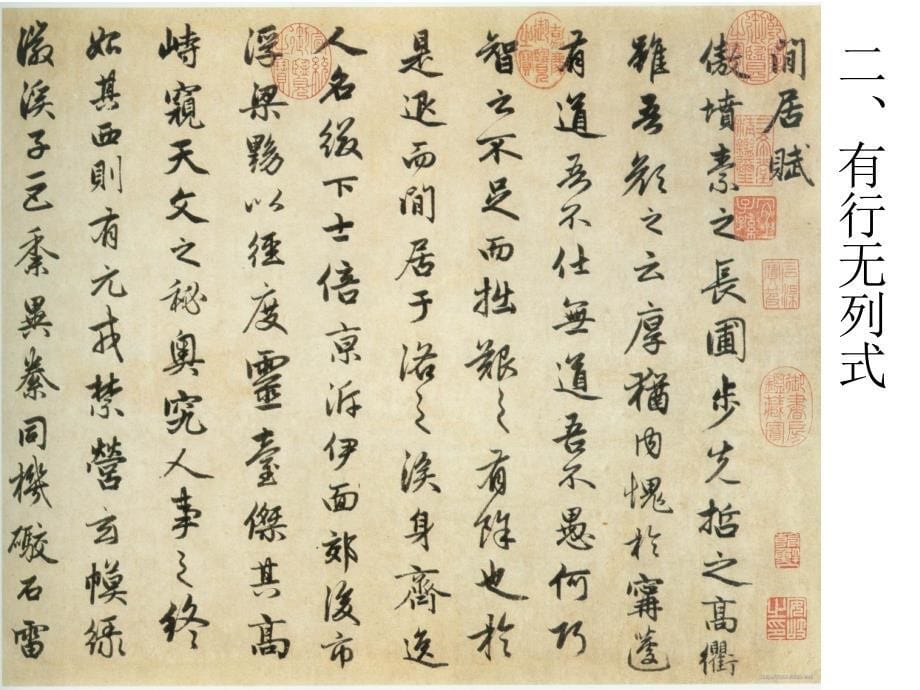 二、有行无列式
閒居賦
傲墳素之長圃步先哲之高衢
雖吾顔之云厚猶内愧於甯蘧
有道吾不仕無道吾不愚何巧
智之不足而拙艱之有餘也於
是退而閒居于洛之涘身齊逸
人名綴下士倍京泝伊面郊後市
浮梁黝以徑度靈臺傑其高
峙窺天文之秘奧究人事之終
始其西則有元戎禁營玄幙綠
徽溪子巨黍異絭同機礮石雷
御書房鑑藏寶